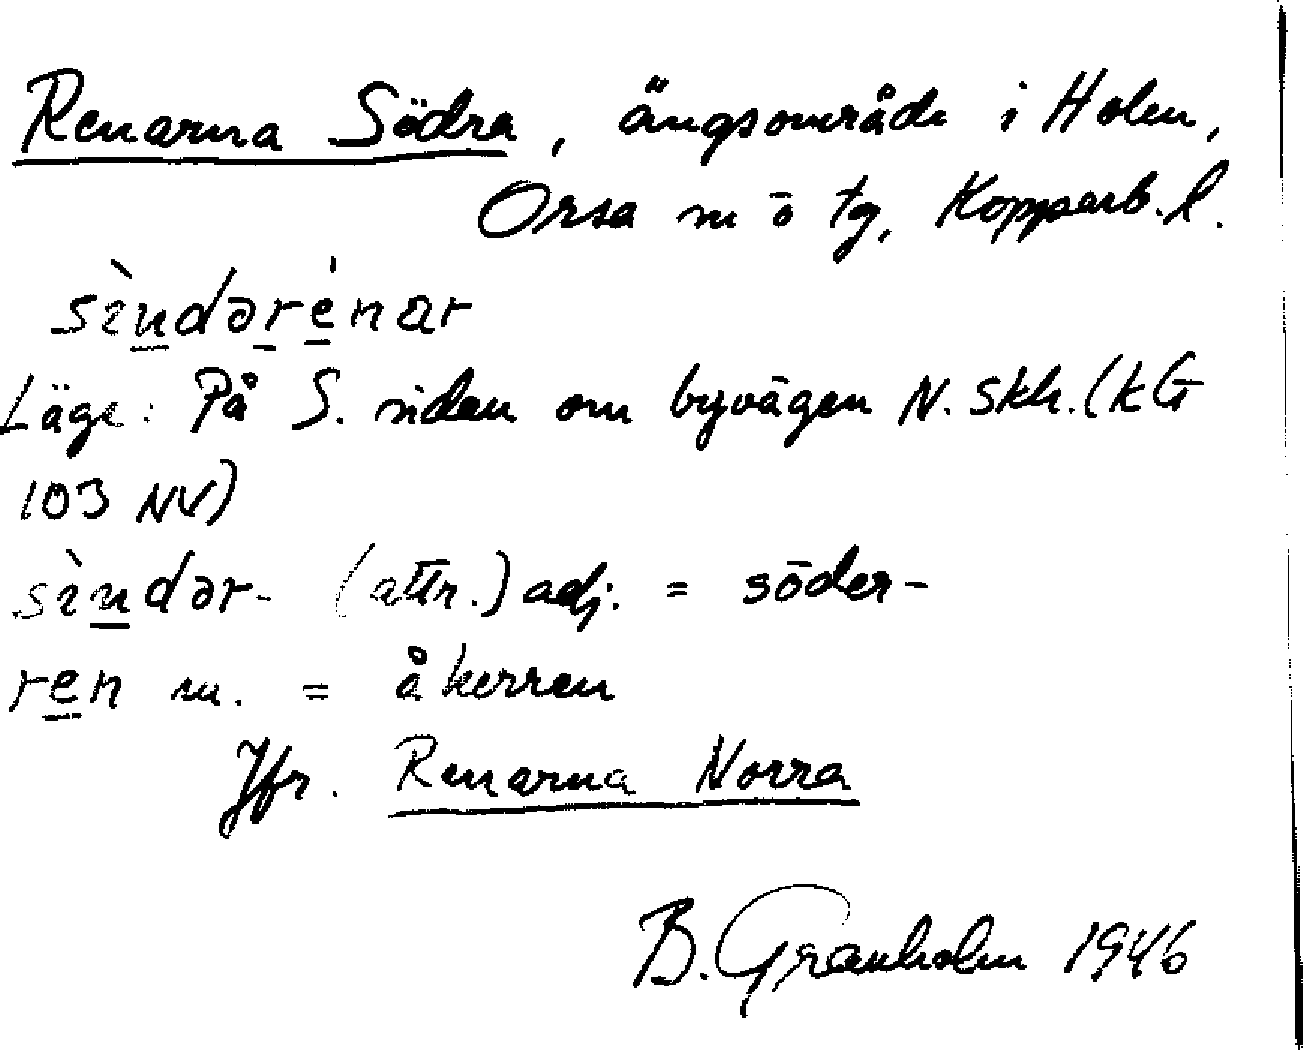 Renarna Södra, ängsområde i Holen,
Orsa sn ö tg, Kopparb. l.
sɩ̀ndərénar
Läge: På S. sidan om byvägen N. Skh. (kG
103 NV)
sɩ̀ndər- (attr.) adj. = söder-
ren m. = åkerren
Jfr. Renarna Norra
B. Granholm 1946